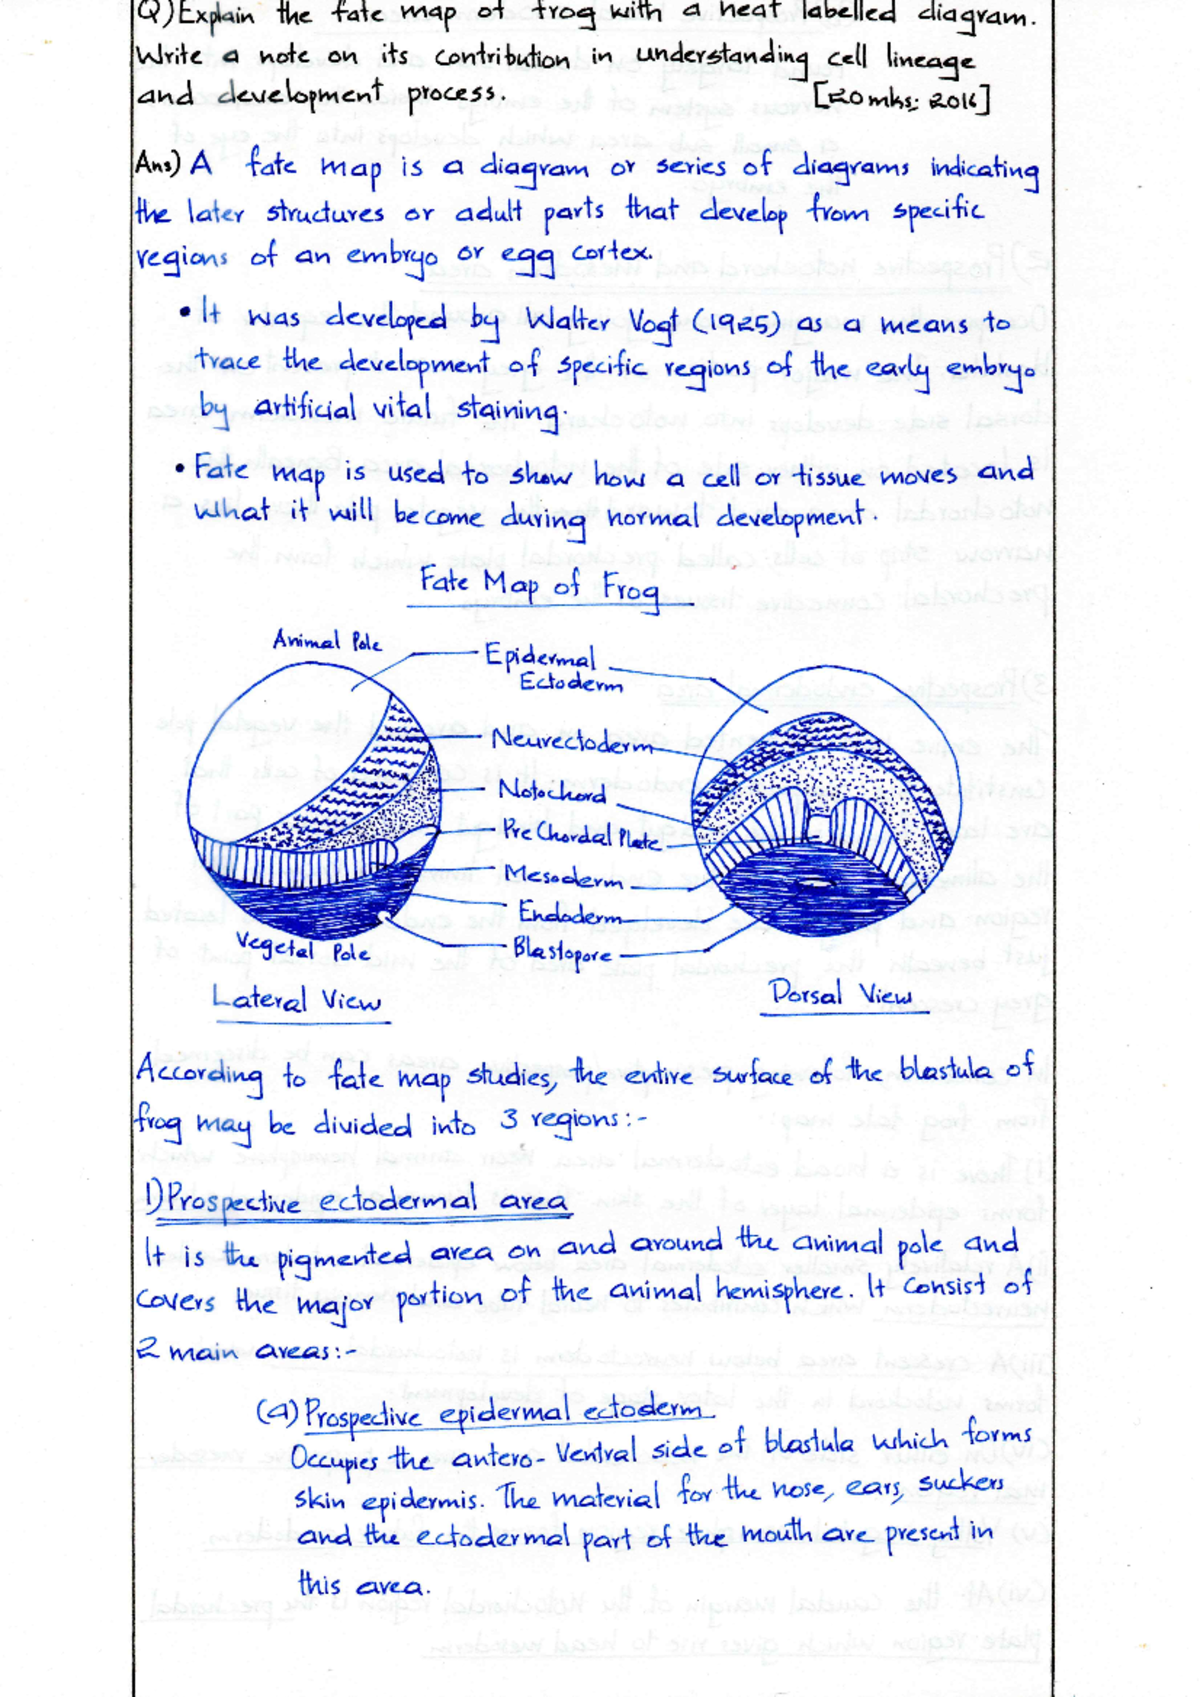 Q) Explain the fate map of frog with a neat labelled diagram.
Write a note on its contribution in understanding cell lineage
and development process. [20mks: 2016]
Ans) A fate map is a diagram or series of diagrams indicating
the later structures or adult parts that develop from specific
regions of an embryo or egg cortex.
• It was developed by Walter Vogt (1925) as a means to
trace the development of specific regions of the early embryo
by artificial vital staining.
• Fate map is used to show how a cell or tissue moves and
what it will become during normal development.
Fate Map of Frog
Animal Pole
Epidermal
Ectoderm
Neurectoderm
Notochord
Pre Chordal Plate
Mesoderm
Endoderm
Blastopore
Vegetal Pole
Lateral View
Dorsal View
According to fate map studies, the entire surface of the blastula of
frog may be divided into 3 regions:-
1) Prospective ectodermal area
It is the pigmented area on and around the animal pole and
covers the major portion of the animal hemisphere. It consist of
2 main areas:-
(a) Prospective epidermal ectoderm
Occupies the antero-Ventral side of blastula which forms
skin epidermis. The material for the nose, ears, suckers
and the ectodermal part of the mouth are present in
this area.